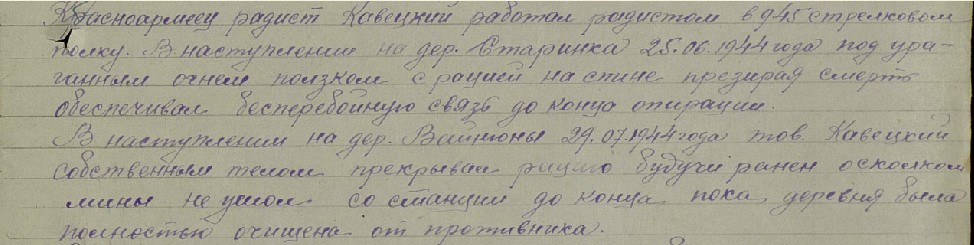 Красноармеец радист Кавецкий работал радистом в 945 стрелковом
полку. В наступлении на дер. Старинка 25.06.1944 года под ура-
ганным огнем ползком с рацией на спине презирая смерть
обеспечивал бесперебойную связь до конца операции.
В наступлении на дер. Вайтюны 29.07.1944 года тов. Кавецкий
собственным телом прекрывал рацию будучи ранен осколком
мины не ушол со станции до конца пока деревня была
полностью очищена от противника.